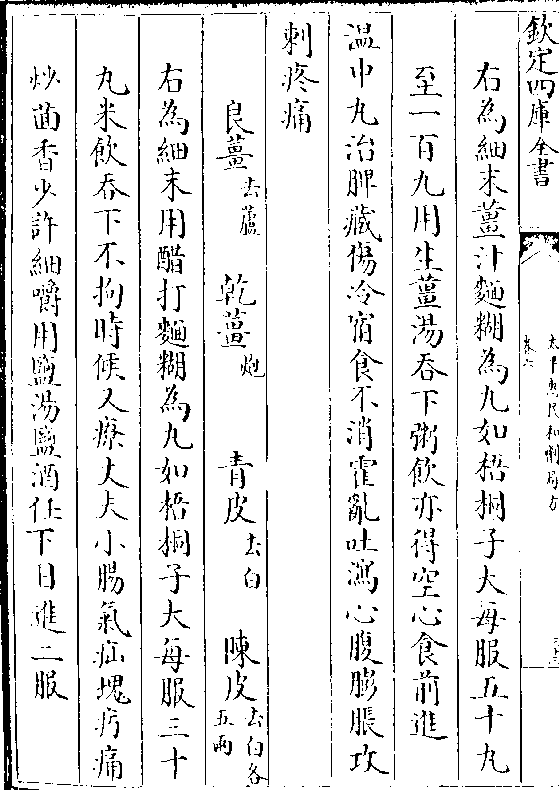 欽定四庫全書
太平惠民和劑局方
卷六
右為細末薑汁麵糊為丸如梧桐子大每服五十丸
至一百丸用生薑湯吞下粥飲亦得空心食前進
溫中丸治脾藏傷冷宿食不消霍亂吐瀉心腹膨脹攻
刺疼痛
良薑去蘆 乾薑炮 青皮去白 陳皮去白各五兩
右為細末用醋打麵糊為丸如梧桐子大每服三十
丸米飲吞下不拘時候又療丈夫小腸氣疝塊疞痛
炒茴香少許細嚼用鹽湯鹽酒任下日進二服